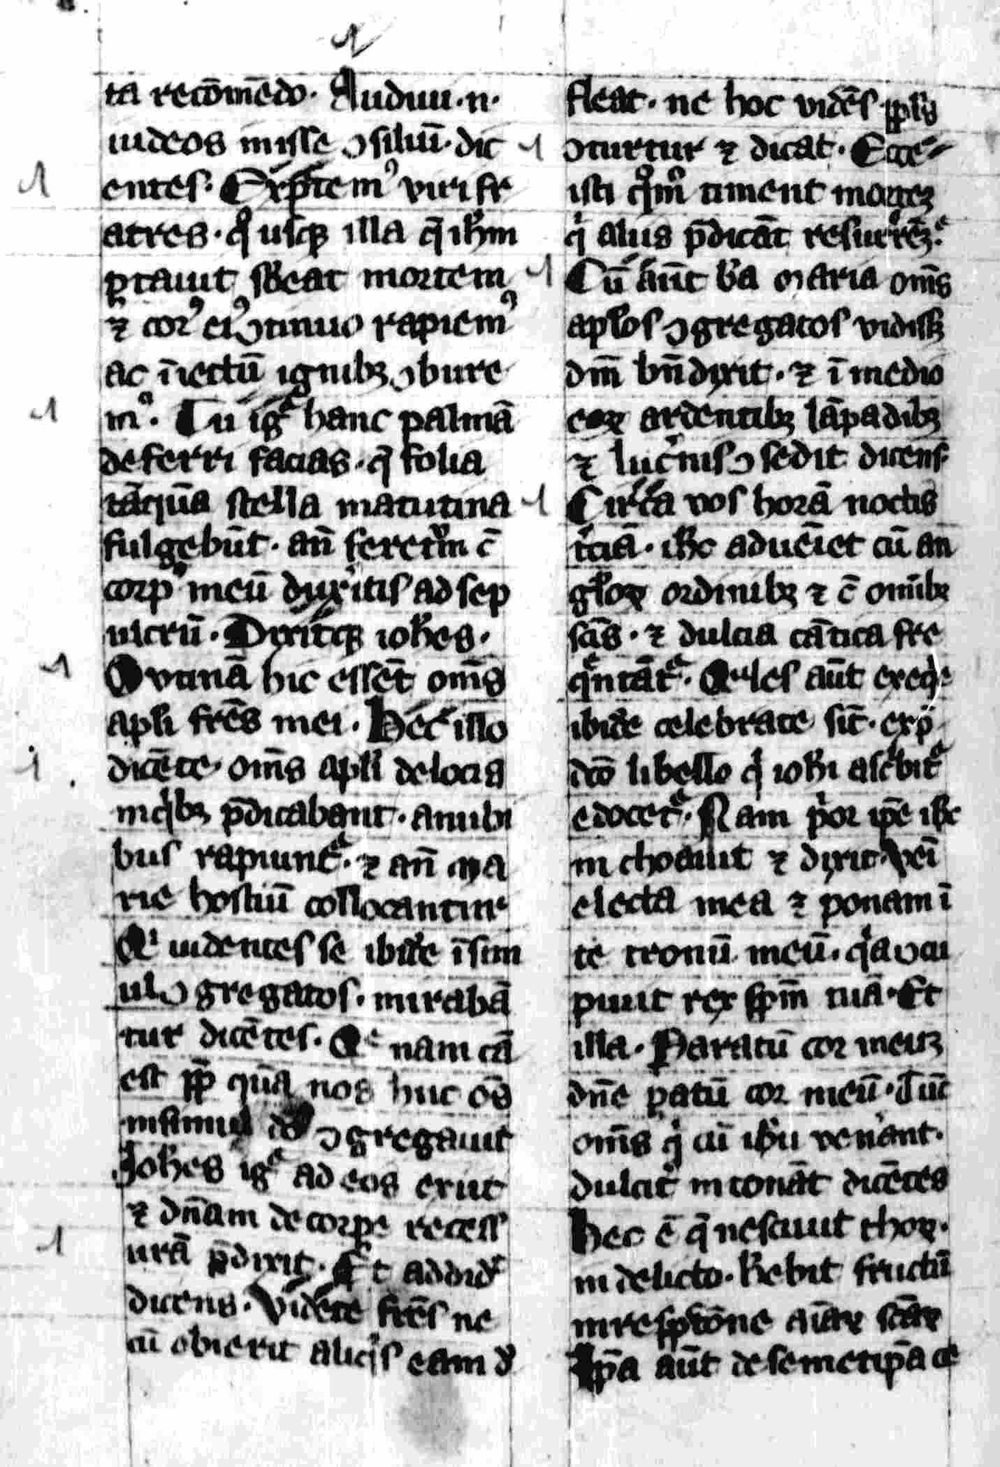 ta recōmēdo. Audiui .n.
iudeos inisse ɔsiliū. dic
entes. Exp̄ctemꝰ viri fr
atres. qͦ usqꝫ illa q̄ ihm̄
portauit sbeat mortem
⁊ corꝰ eiꝰ ɔtinuo rapiemꝰ
ac īiectū ignibꝫ ɔbure
mꝰ. Tu igͥ hanc palmā
deferri facias. q̄ folia
tāqūa stella matutina
fulgebūt. an̄ feretrm̄ c̄
corpꝰ meū duxitis ad sep
ulcrū. Dixitqꝫ ioh̄es.
O vtinā hic essēt om̄s
apl̄i frēs mei. Hec illo
dicēte. om̄s apl̄i de locis
in qͥbꝫ p̄dicabant. a nubi
bus rapiunt᷑. ⁊ an̄ ma
rie hostiū collocantur
Qͥ uidentes se ibidē īsim
ul ɔgregatos. mirabā
tur dicētes. Qͤ nam cā
est pp̄ quā nos huc oēs
insimul ds̄ ɔgregauit
Ioh̄es igͥ ad eos exiit
⁊ dn̄am de corpe recess
urā p̄dixit. Et addidͥ
dicens. Videte frēs ne
cū obierit aliqͥs eam d
fleat. ne hoc vidēs ppl̄s
ɔturtur ⁊ dicat. Ecce
isti qͦm̄ timent mortēꝫ
qͥ aliis p̄dicāt resurrēꝫ.
Cū aūt bā maria om̄s
apl̄os ɔgregatos vidissꝫ
dm̄ bn̄dixit. ⁊ ī medio
eoꝝ ardentibꝫ lāpadibꝫ
⁊ lucͥnis ɔsedit dicens.
Circa vos horā noctis
tͥciā. ih̄c aduēiet cū an
gl̄oꝝ ordinibꝫ ⁊ c̄ omībꝫ
sc̄is. ⁊ dulcia cātica fre
qͤntāt᷑. Qͣles aūt exeqͥe
ibidē celebrate sūt. exp̄
dc̄o libello qͥ ioh̄i ascͥbit᷑
edocet᷑. Nam pͥor ip̄e ih̄c
inchoauit ⁊ dixit. veī
electa mea ⁊ ponam ī
te tronū meū. qͥa ɔcu
piuit rex spēm tuā. Et
illa. Paratū cor meuꝫ
dn̄e patū cor meū. Tūc
om̄s qͥ cū ih̄u venͥant.
dulcitͥ intonāt dicētes
Hec ē q̄ nesciuit thoꝝ.
in delicto. h̄ebit fructū
in resp̄ctōne aīaꝝ sc̄aꝝ
Ip̄a aūt de semetip̄a ce